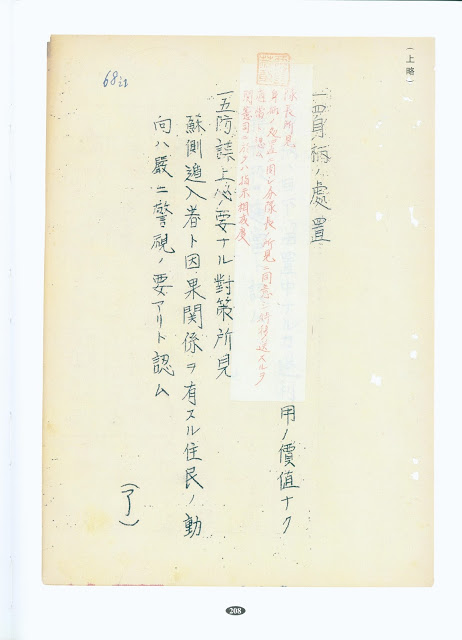 (上略)
一四、身柄ノ處置
用ノ價値ナク
隊長所見
身柄ノ處置ニ関シ分隊長ノ所見ニ同意シ特移送スルヲ
適當ト認ム
関憲司ニ於テハ指示相成度
一五、防諜上必要ナル對策所見
蘇側遁入者ト因果関係ヲ有スル住民ノ動
向ハ嚴ニ警視ノ要アリト認ム
(了)
68
208